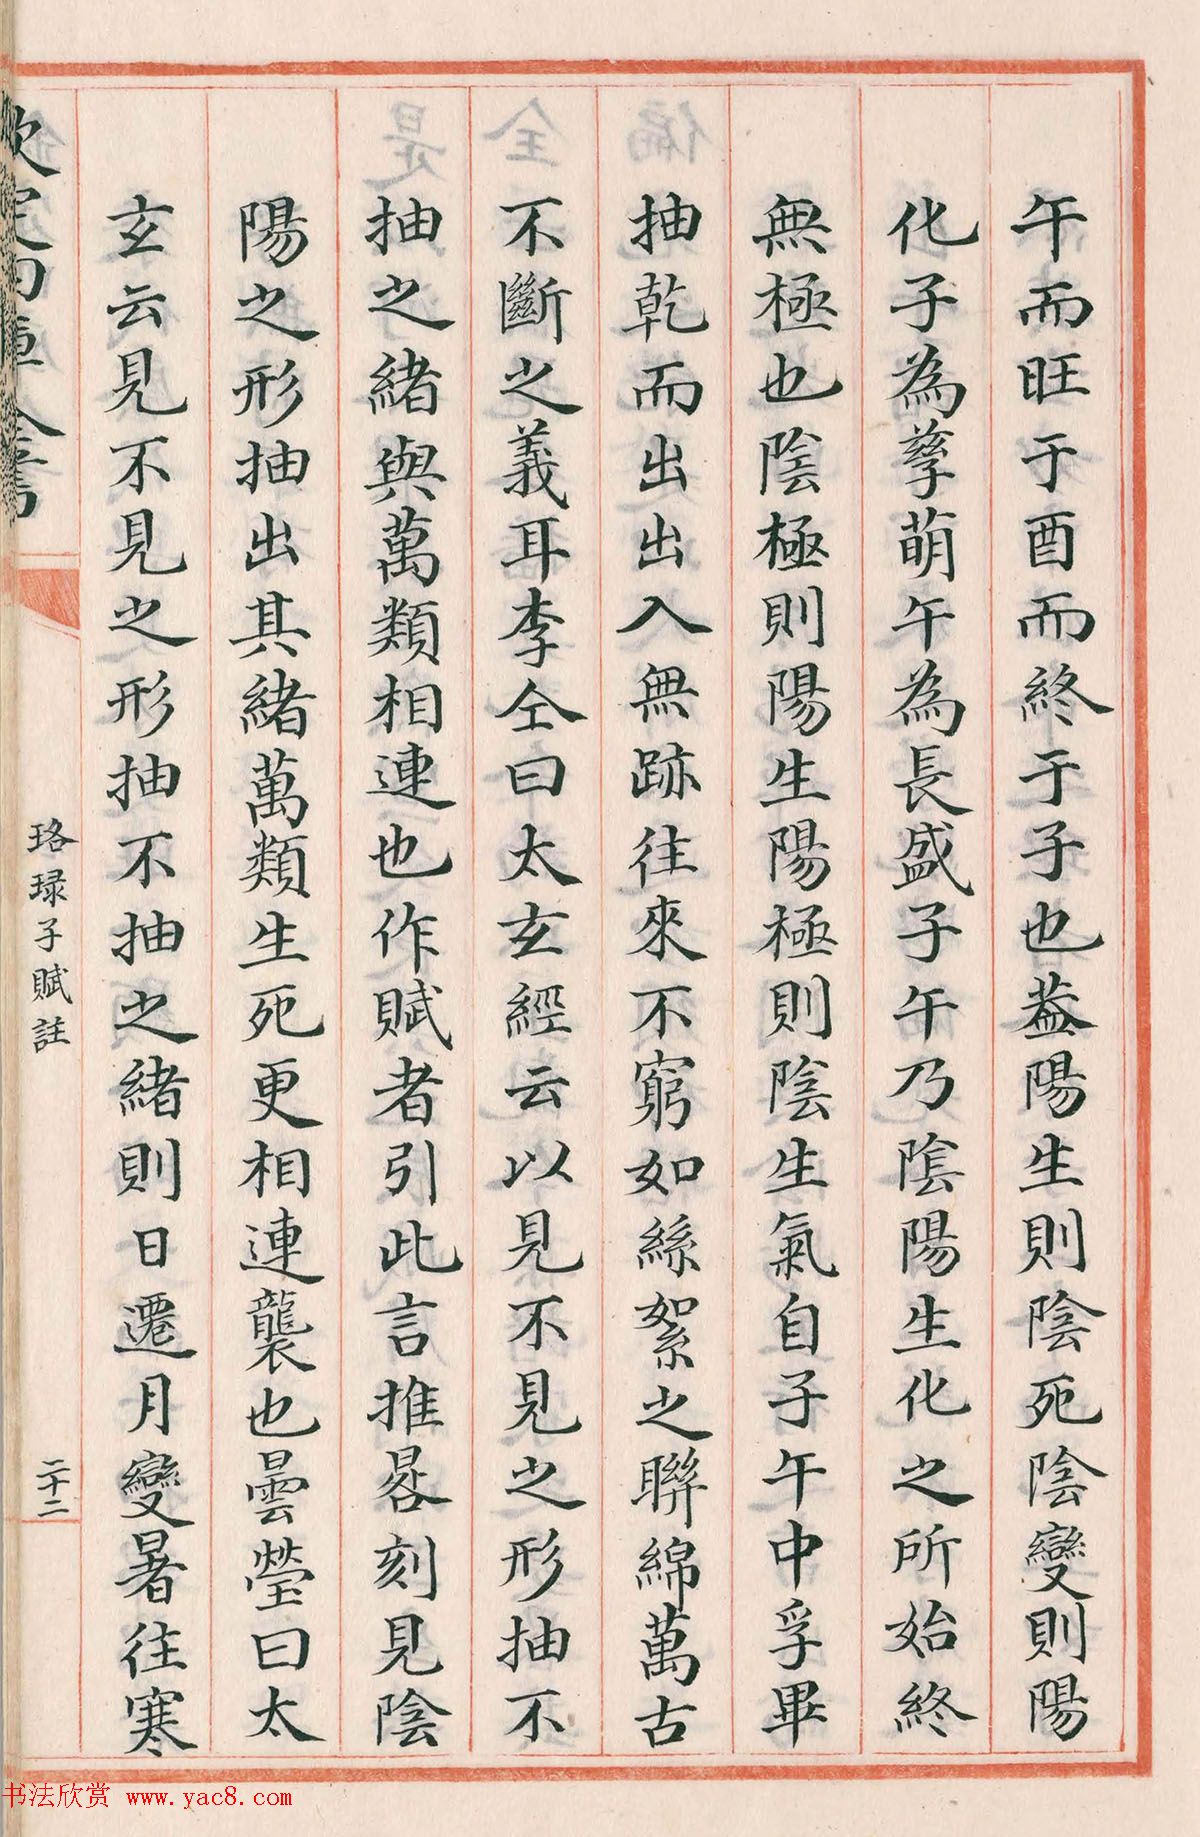 午而旺于酉而終于子也葢陽生則陰死陰變則陽
化子為孳萌午為長盛子午乃陰陽生化之所始終
無極也陰極則陽生陽極則陰生氣自子午中孚畢
抽乾而出出入無跡往來不窮如絲絮之聯綿萬古
不斷之義耳李仝曰太玄經云以見不見之形抽不
抽之緒與萬類相連也作賦者引此言推晷刻見陰
陽之形抽出其緒萬類生死更相連襲也曇瑩曰太
玄云見不見之形抽不抽之緒則日遷月變暑往寒
欽定四庫全書
珞琭子賦註
二十二
书法欣赏 www.yac8.com